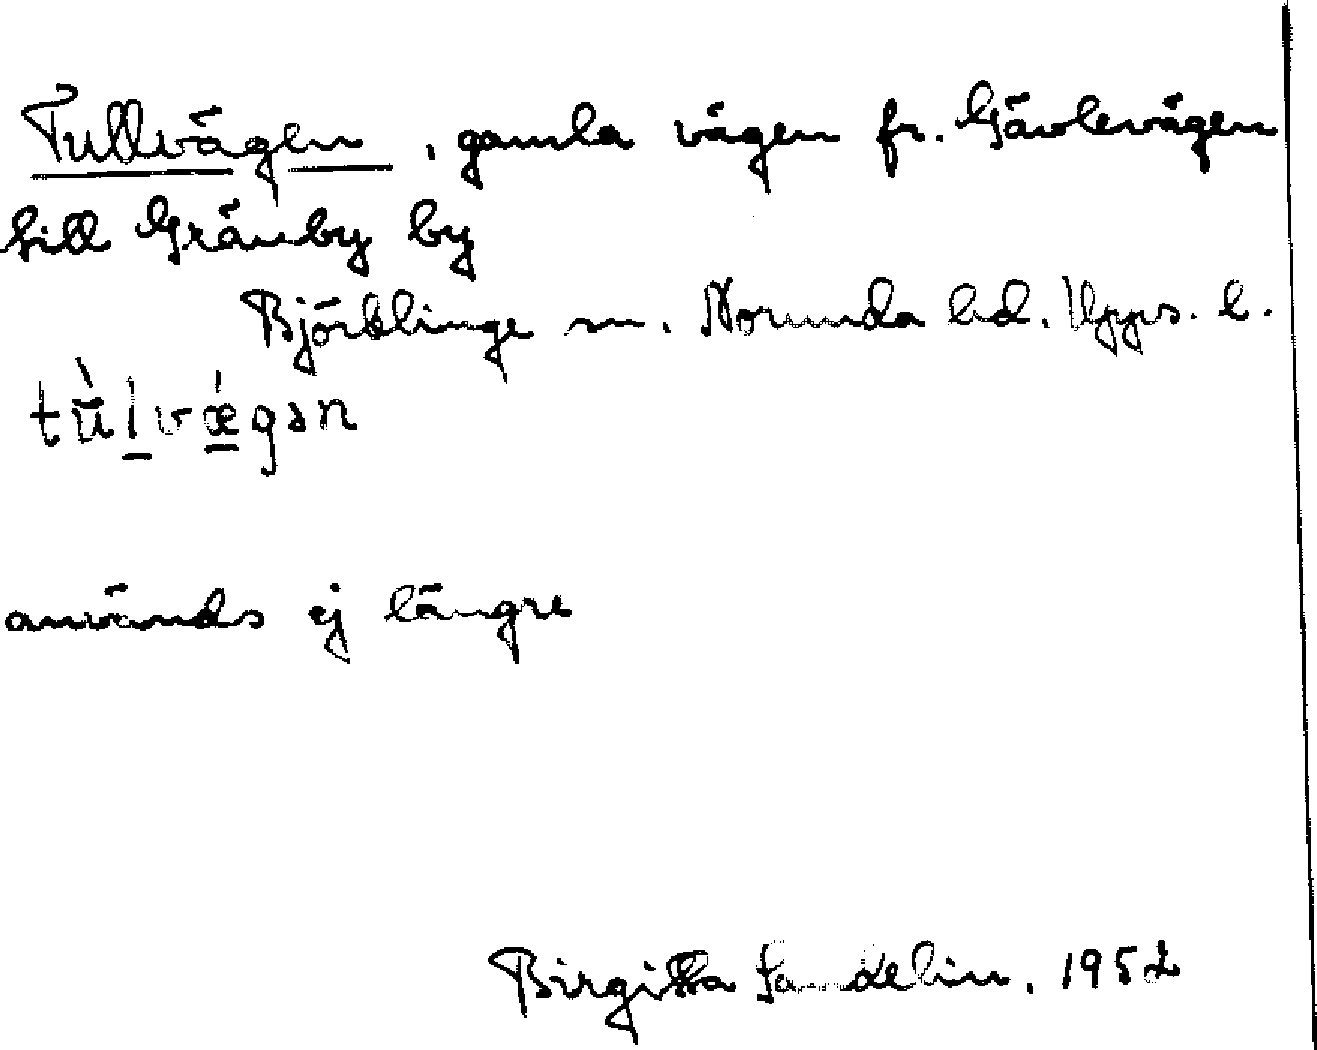 Tullvägen, gamla vägen fr. Gävlevägen
till Gränby by
Björklinge sn. Norunda hd. Upps. l.
tù̄l̲vǽ̲gən
används ej längre
Birgitta Sandelin. 1952